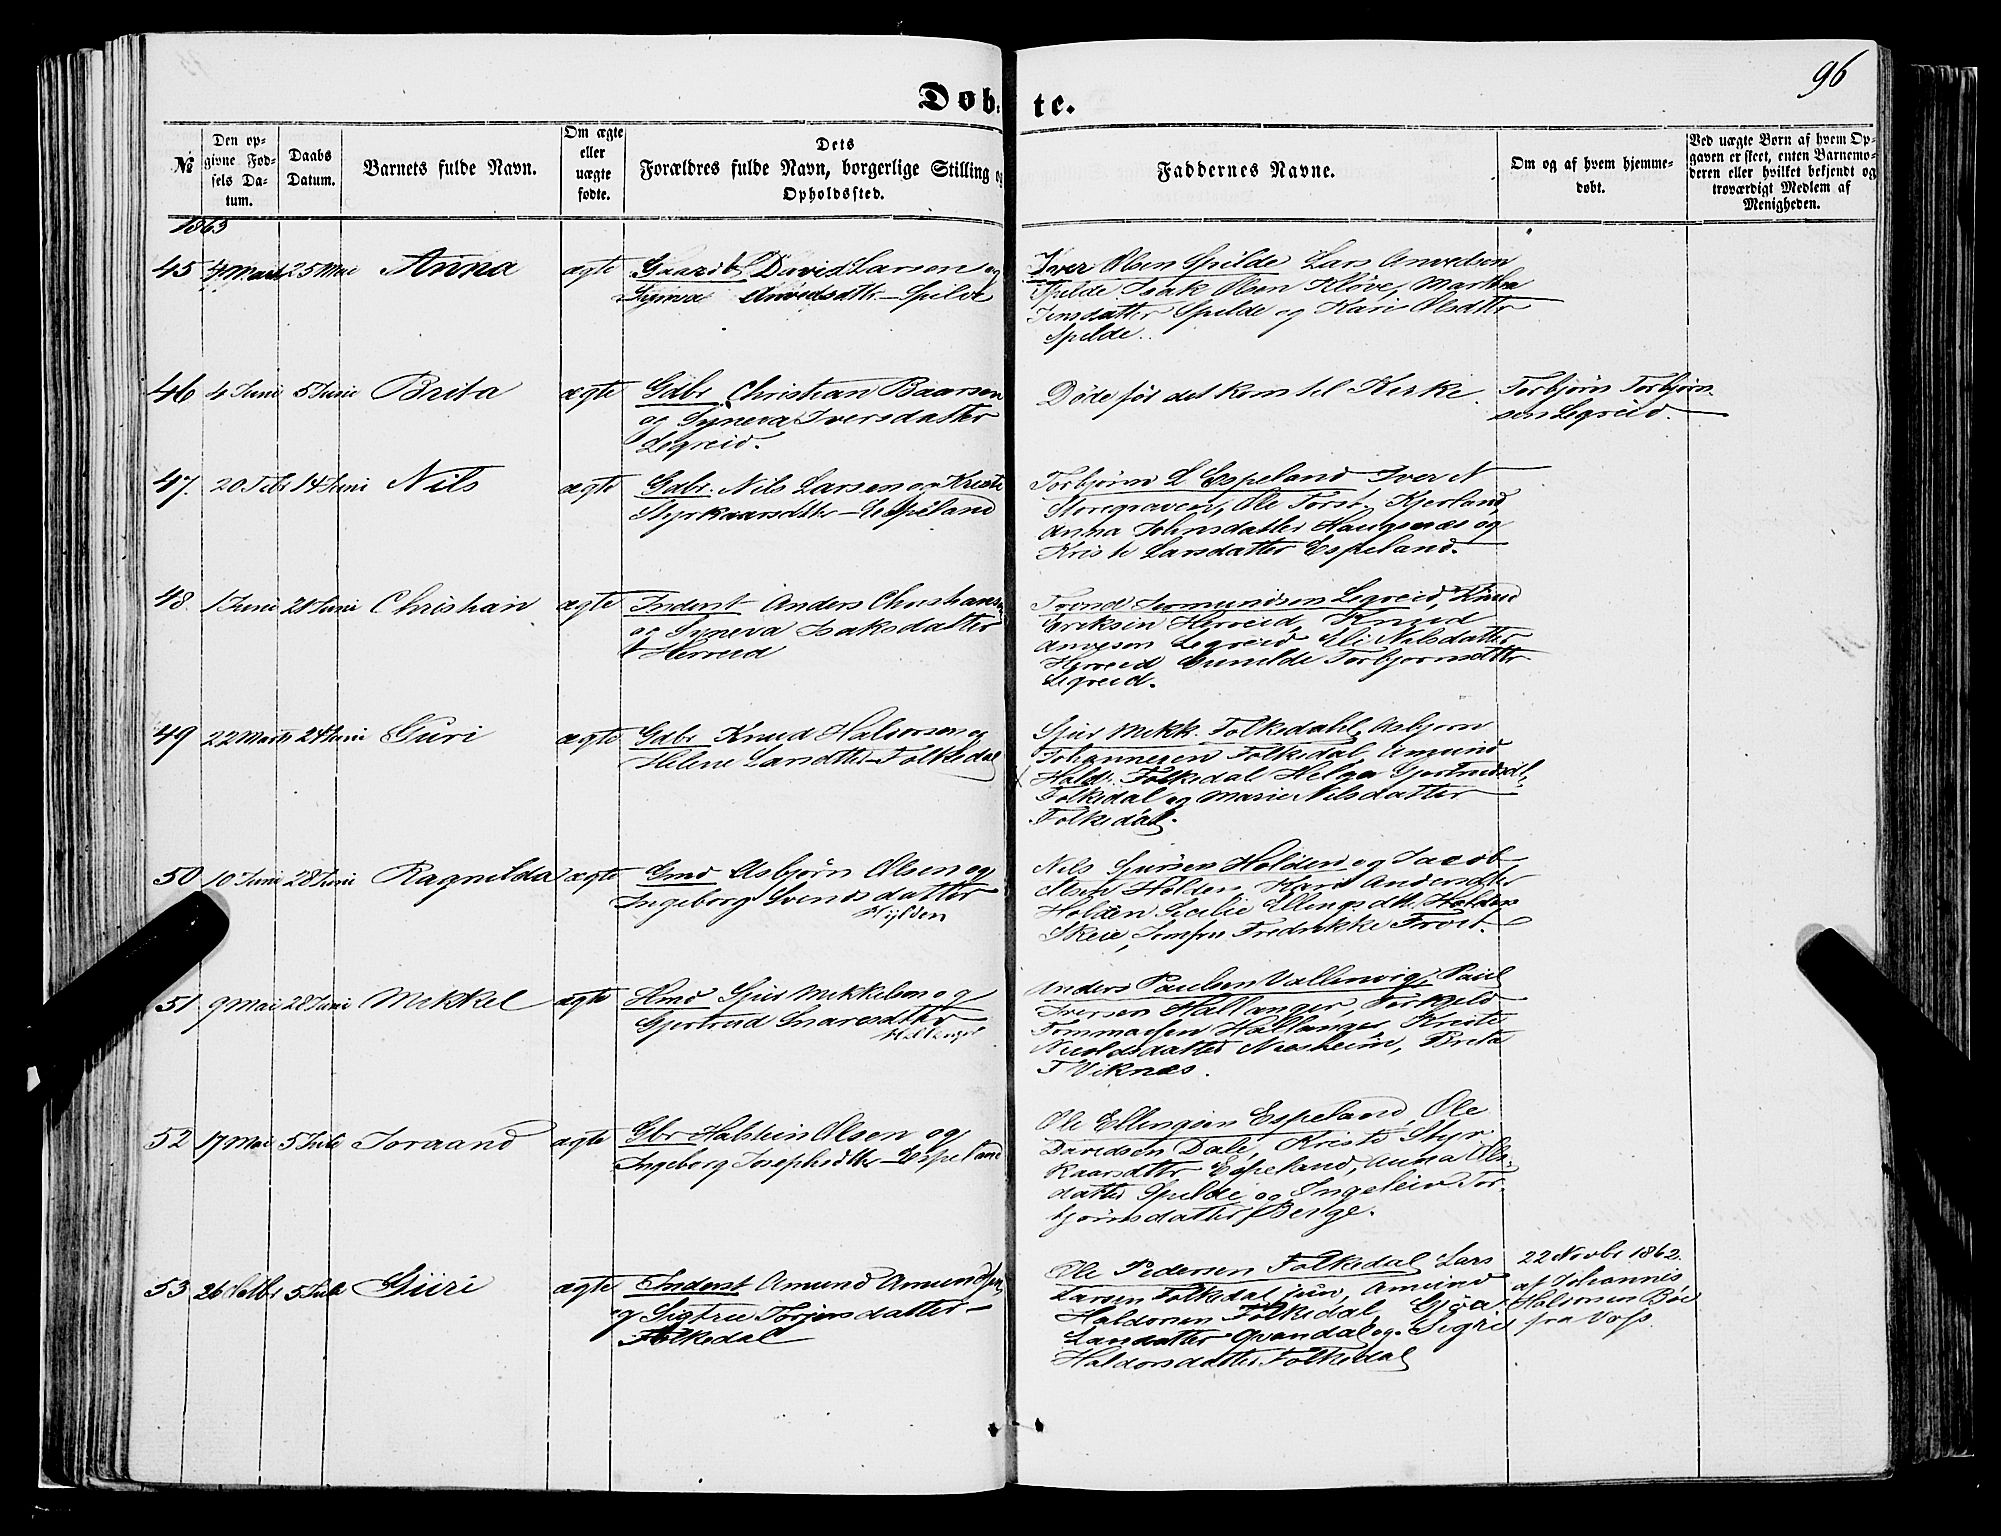 96
Døb- te.
№
Den op-
givne Fød-
sels Da-
tum.
Daabs
Datum.
Barnets fulde Navn.
Om ægte
eller
uægte
fødte.
Dets
Forældres fulde Navn, borgerlige Stilling og
Opholdssted.
Faddernes Navne.
Om og af hvem hjemme-
døbt.
Ved uægte Børn af hvem Op-
gaven er skeet, enten Barnemo-
deren eller hvilket bekjendt og
troværdigt Medlem af
Menigheden.
1863
45 4 Marts 25 Mai Anna ægte David Larsen og
Synva Anvedsdatter - Spilde
Iver Olsen Spilde Lars Anvedsen
Spilde Isak Olsen Kløve, Martha
Jensdatter Spilde og Kari Olsdttr
Spilde.
46 4 Juni 5 Juni Brita ægte Gdbr Christian Baarsen
og Syneva Iversdatter
Legreid.
Døde før det kom til Kirke.
Torbjørn Torbjørn-
sen Legreid.
47. 20 Febr 14 Juni Nils ægte Gdbr. Nils Larsen og Kristi
Styrkaarsdttr - Espeland
Torbjørn L Espeland Iver N
Storegraven, Ole Torst. Kjerland,
Anna Johnsdatter Haugsnæs og
Kristi Larsdatter Espeland.
48. 1 Juni 21 Juni Christian ægte Inderst Anders Christians
og Syneva Isaksdatter
Herreid
Trond Legreid, Knud
Eriksen Herreid, Knud
Legreid Eli Nilsdatter
Herreid Gunilde Torbjørnsdttr
Legreid.
49 22 Marts 24 Juni Guri ægte Gdbr Knud Halvorsen og
Helene Larsdtter - Folkedal
Sjur Mikk. Folkedahl, Asbjørn
Johannesen Folkedal, Amund
Hald. Folkedal Helga
Folkedal og Marie Nilsdatter
Folkedal.
50 10 Juni 28 Juni Ragnilda ægte Gmd Asbjørn Olsen og
Ingeborg Svendsdatter
Hylden
Nils Sjursen Holden og Jacob
Olsen Holden, Kari Andersdtter
Holden Secilie Ellingsdtt. Holden
Skeie, Jomfru Fredrikke Frost.
51. 9 Mai 28 Juni Mikkel ægte Hmd Sjur Mikkelsen og
Gjertrud Snaresdttr
Hallanger
Anders Paulsen Vallervig, Paul
Iversen Hallanger, Torkjeld
Tommasen Hallanger, Kristi
Nesheim, Brita
T Viknæs.
52 17 Mai 5 Juli Toraand ægte Gbr Halstein Olsen og
Ingeborg Josephsdttr - Espeland
Ole Ellingsen Espeland, Ole
Davidsen Dale, Kristi Styr-
kaarsdttr Espeland, Anna Ols-
datter Spilde og Ingeleiv Tor-
bjørnsdatter Berge.
53 26 5 Juli Guri ægte Inderst Amund Amundsen
og Sigtru Torjersdatter -
Folkedal
Ole Pedersen Folkedal Lars
Larsen Folkedal jun, Amund
Haldorsen Folkedal, Gjøa
Larsdatter Qvandal og Sigri
Haldorsdatter Folkedal
22 Novbr 1862.
af Johannis
Halsonen Bøe
fra Voss.